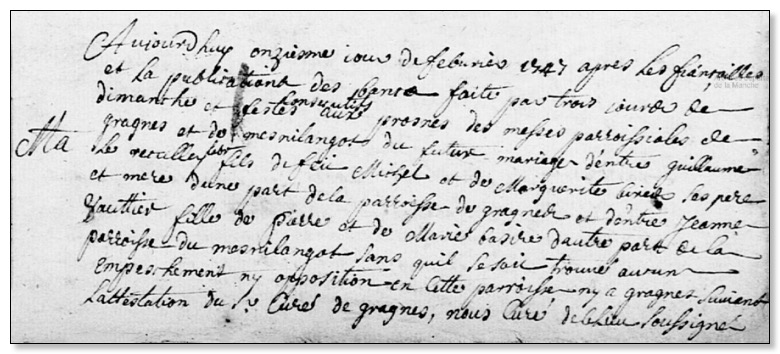 Aujourdhuy onzieme iour de febvrier 1747 apres les fiançailles
et la publication des bancs faite par trois iours de
dimanche et festes consecutifs aux prosnes des messes parroissiales de
Ma
gragnes et du mesnilangot du futur mariage dentre guillaume
le fils de feu Michel et de Marguerite ses pere
et mere dune part de la parroisse de gragnes et dentre Jeanne
Gauttier fille de pierre et de Marie basire dautre part de la
parroisse du mesnilangot sans quil se soit trouvé aucun
empeschement ny opposition en cette parroisse ny a gragnes suivant
lattestation du Sr Curé de gragnes, nous Curé de lieu soussigné
de la Manche